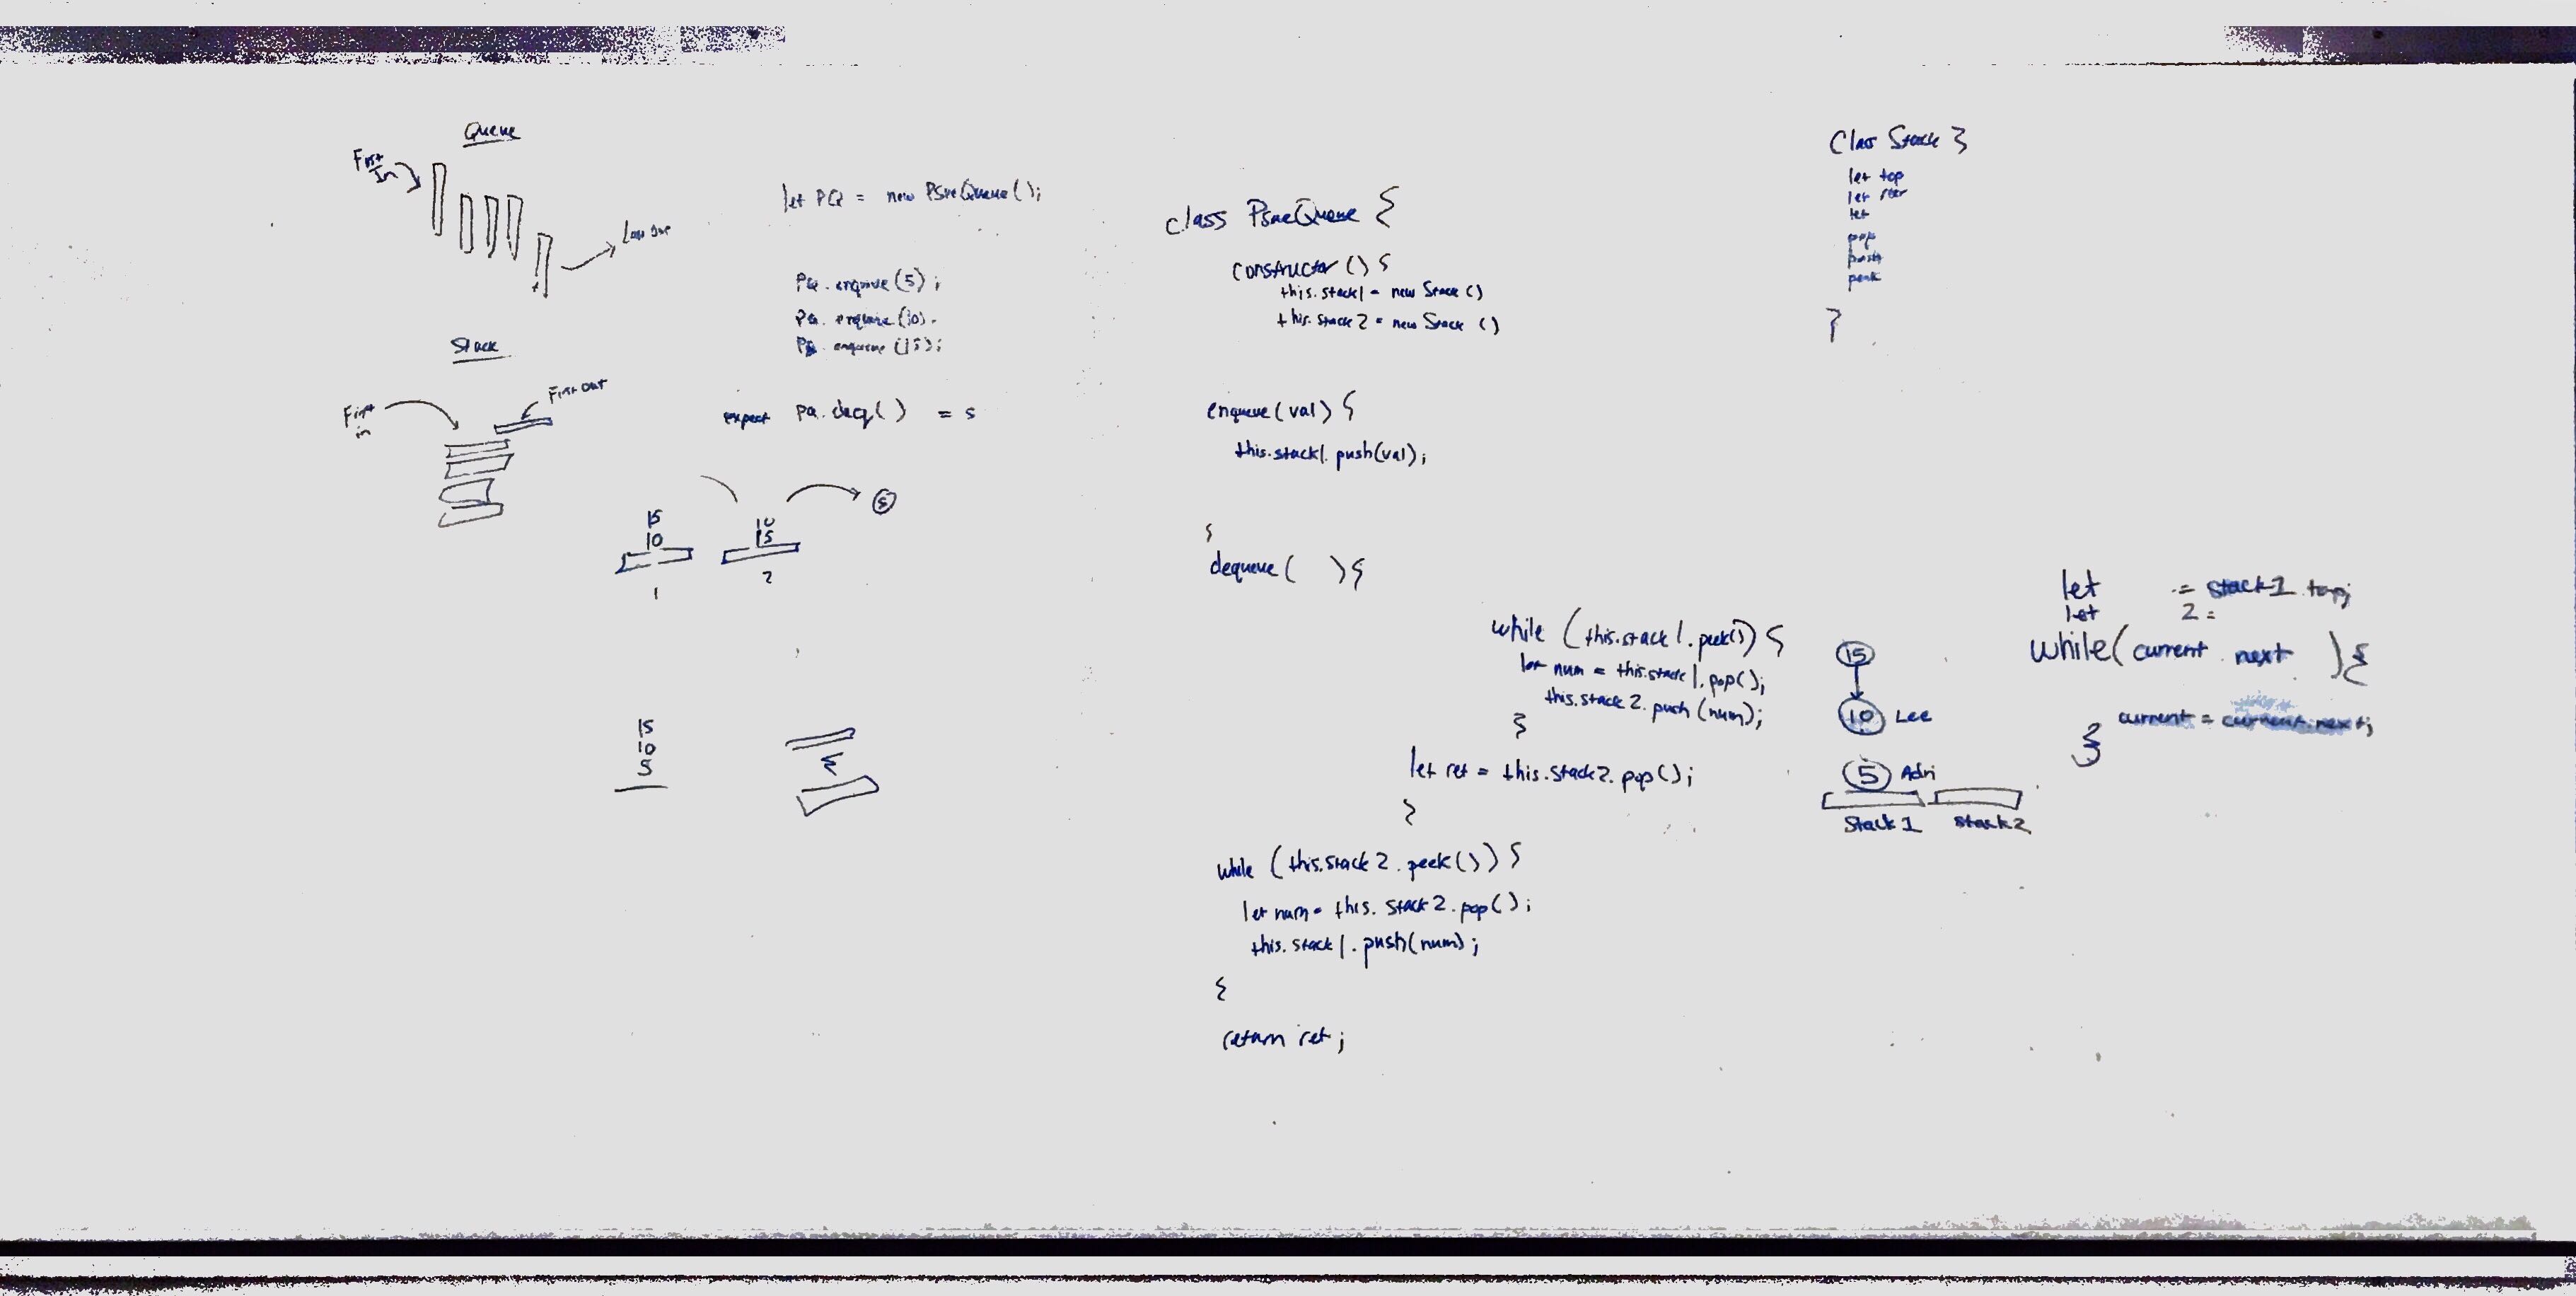 Queue
First
In
Stack
First
in
First out
let PQ = new PsueQueue();
PQ.enqueue(5);
PQ.enqueue(10).
PQ.enqueue(15);
expect PQ.deq() = 5
15
10
1
10
15
2
5
15
10
5
class PsueQueue {
constructor () {
this.stack1 = new Stack ()
this.stack2 = new Stack ()
enqueue(val) {
this.stack1.push(val);
}
dequeue( ){
while (this.stack1.peek()) {
let num = this.stack1.pop();
this.stack2.push(num);
}
let ret = this.stack2.pop();
}
while (this.stack2.peek()) {
let num = this.stack2.pop();
this.stack1.push(num);
}
return ret;
Class Stack {
let top
let
let
pop
push
peak
}
15
10 Lee
5 Adri
Stack1 stack2
let = stack1.top;
let 2 =
while(current.next ){
current = current.next;
}